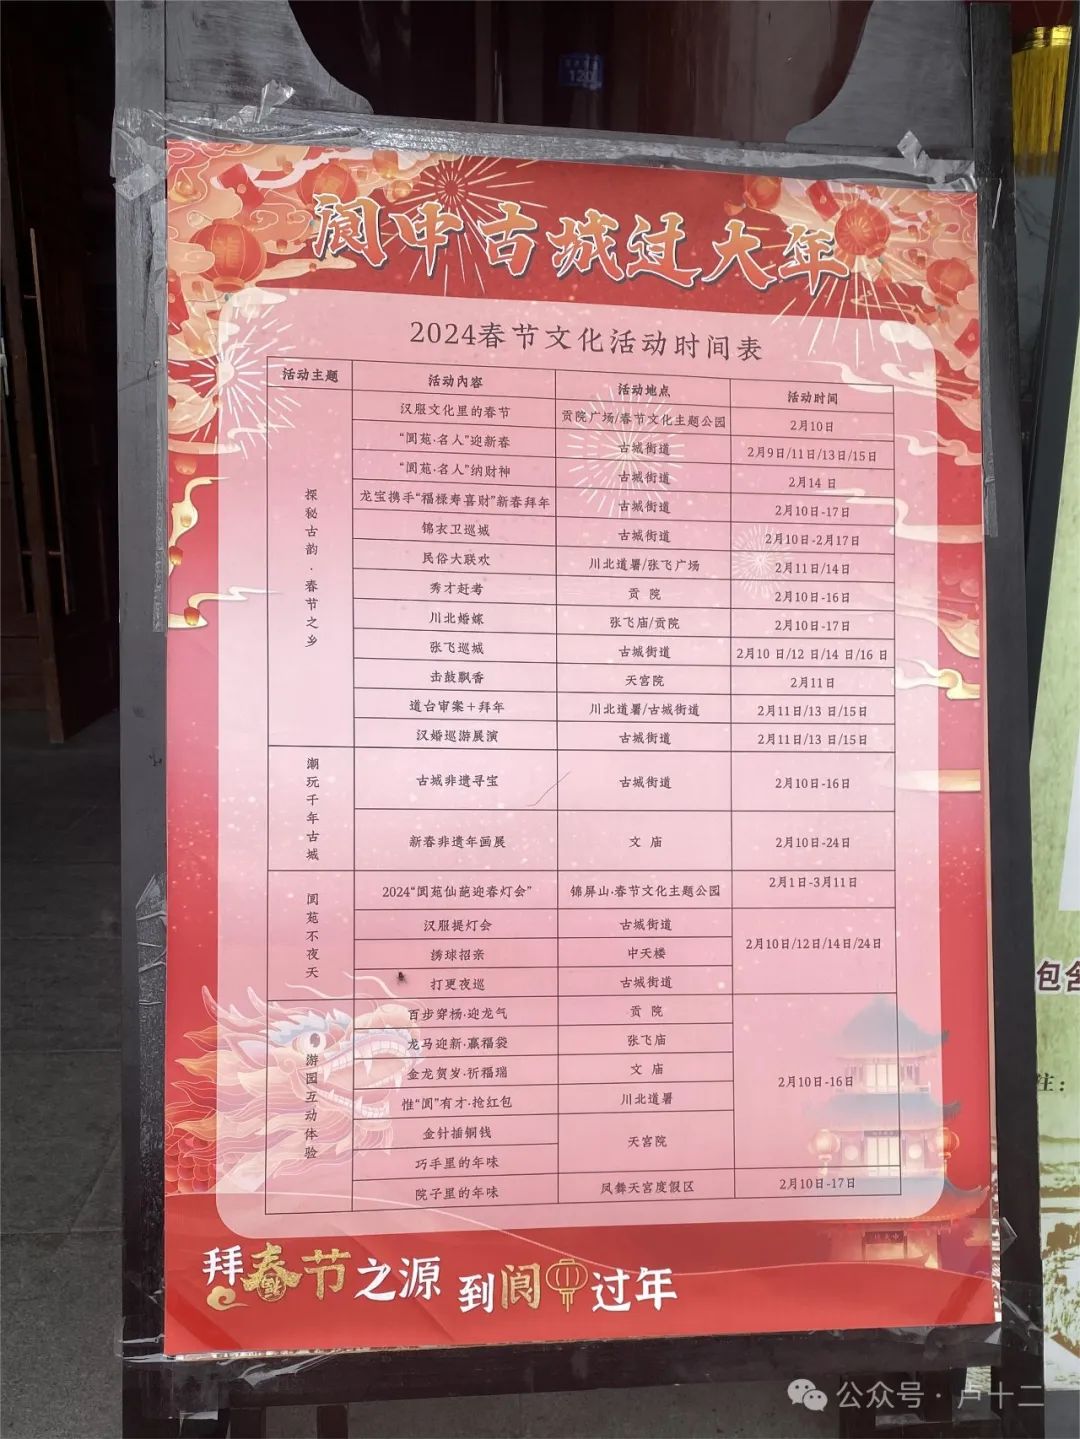 阆中古城过大年
2024春节文化活动时间表
活动主题 活动内容 活动地点 活动时间
探秘古韵·春节之乡
汉服文化里的春节 贡院广场/春节文化主题公园 2月10日
“阆苑·名人”迎新春 古城街道 2月9日/11日/13日/15日
“阆苑·名人”纳财神 古城街道 2月14 日
龙宝携手“福禄寿喜财”新春拜年 古城街道 2月10日-17日
锦衣卫巡城 古城街道 2月10日-2月17日
民俗大联欢 川北道署/张飞广场 2月11日/14日
秀才赶考 贡 院 2月10日-16日
川北婚嫁 张飞庙/贡院 2月10日-17日
张飞巡城 古城街道 2月10 日/12 日/14 日/16 日
击鼓飘香 天宫院 2月11日
道台审案+拜年 川北道署/古城街道 2月11日/13 日/15日
汉婚巡游展演 古城街道 2月11日/13 日/15日
潮玩千年古城
古城非遗寻宝 古城街道 2月10日-16日
新春非遗年画展 文 庙 2月10日-24日
阆苑不夜天
2024“阆苑仙葩迎春灯会” 锦屏山·春节文化主题公园 2月1日-3月11日
汉服提灯会 古城街道 2月10日/12日/14日/24日
绣球招亲 中天楼
打更夜巡 古城街道
游园互动体验
百步穿杨·迎龙气 贡 院 2月10日-16日
龙马迎新·赢福袋 张飞庙
金龙贺岁·祈福瑞 文 庙
惟“阆”有才·抢红包 川北道署
金针插铜钱 天宫院
巧手里的年味
院子里的年味 凤舞天宫度假区 2月10日-17日
拜春节之源 到阆中过年
120
包含
注：
公众号·卢十二